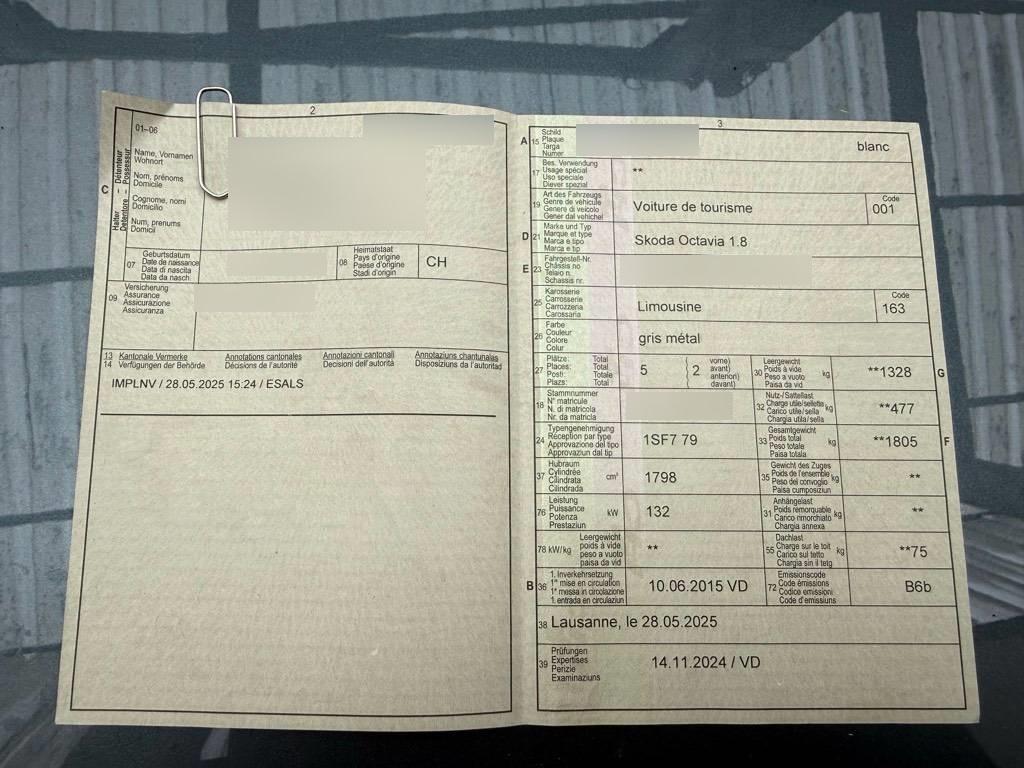 2
01–06
Name, Vornamen
Wohnort
Nom, prénoms
Domicile
Cognome, nomi
Domicilio
Num, prenums
Domicil
C
Halter – Détenteur
Detentore – Possessur
07
Geburtsdatum
Date de naissance
Data di nascita
Data da nasch.
08
Heimatstaat
Pays d'origine
Paese d'origine
Stadi d'origin
CH
09
Versicherung
Assurance
Assicurazione
Assicuranza
13 Kantonale Vermerke Annotations cantonales Annotazioni cantonali Annotaziuns chantunalas
14 Verfügungen der Behörde Décisions de l'autorité Decisioni dell'autorità Disposiziuns da l'autoritad
IMPLNV / 28.05.2025 15:24 / ESALS
3
A 15
Schild
Plaque
Targa
Numer
blanc
17
Bes. Verwendung
Usage spécial
Uso speciale
Diever spezial
**
19
Art des Fahrzeugs
Genre de véhicule
Genere di veicolo
Gener dal vehichel
Voiture de tourisme
Code
001
D 21
Marke und Typ
Marque et type
Marca e tipo
Marca e tip
Skoda Octavia 1.8
E 23
Fahrgestell-Nr.
Châssis no
Telaio n.
Schassis nr.
25
Karosserie
Carrosserie
Carrozzeria
Carossaria
Limousine
Code
163
26
Farbe
Couleur
Colore
Colur
gris métal
27
Plätze: Total
Places: Total
Posti: Totale
Plazs: Total
5
2
vorne)
avant)
anteriori)
davant)
30
Leergewicht
Poids à vide
Peso a vuoto
Paisa da vid
kg
**1328
G
18
Stammnummer
N° matricule
N. di matricola
Nr. da matricla
32
Nutz-/Sattellast
Charge utile/sellette
Carico utile/sella
Chargia utila/sella
kg
**477
24
Typengenehmigung
Réception par type
Approvazione del tipo
Approvaziun dal tip
1SF7 79
33
Gesamtgewicht
Poids total
Peso totale
Paisa totala
kg
**1805
F
37
Hubraum
Cylindrée
Cilindrata
Cilindrada
cm³
1798
35
Gewicht des Zuges
Poids de l'ensemble
Peso del convoglio
Paisa cumposiziun
kg
**
76
Leistung
Puissance
Potenza
Prestaziun
kW
132
31
Anhängelast
Poids remorquable
Carico rimorchiato
Chargia annexa
kg
**
78 kW/kg
Leergewicht
poids à vide
peso a vuoto
paisa da vid
**
55
Dachlast
Charge sur le toit
Carico sul tetto
Chargia sin il tetg
kg
**75
B 36
1. Inverkehrsetzung
1re mise en circulation
1a messa in circolazione
1. entrada en circulaziun
10.06.2015 VD
72
Emissionscode
Code émissions
Codice emissioni
Code d'emissiuns
B6b
38 Lausanne, le 28.05.2025
39
Prüfungen
Expertises
Perizie
Examinaziuns
14.11.2024 / VD